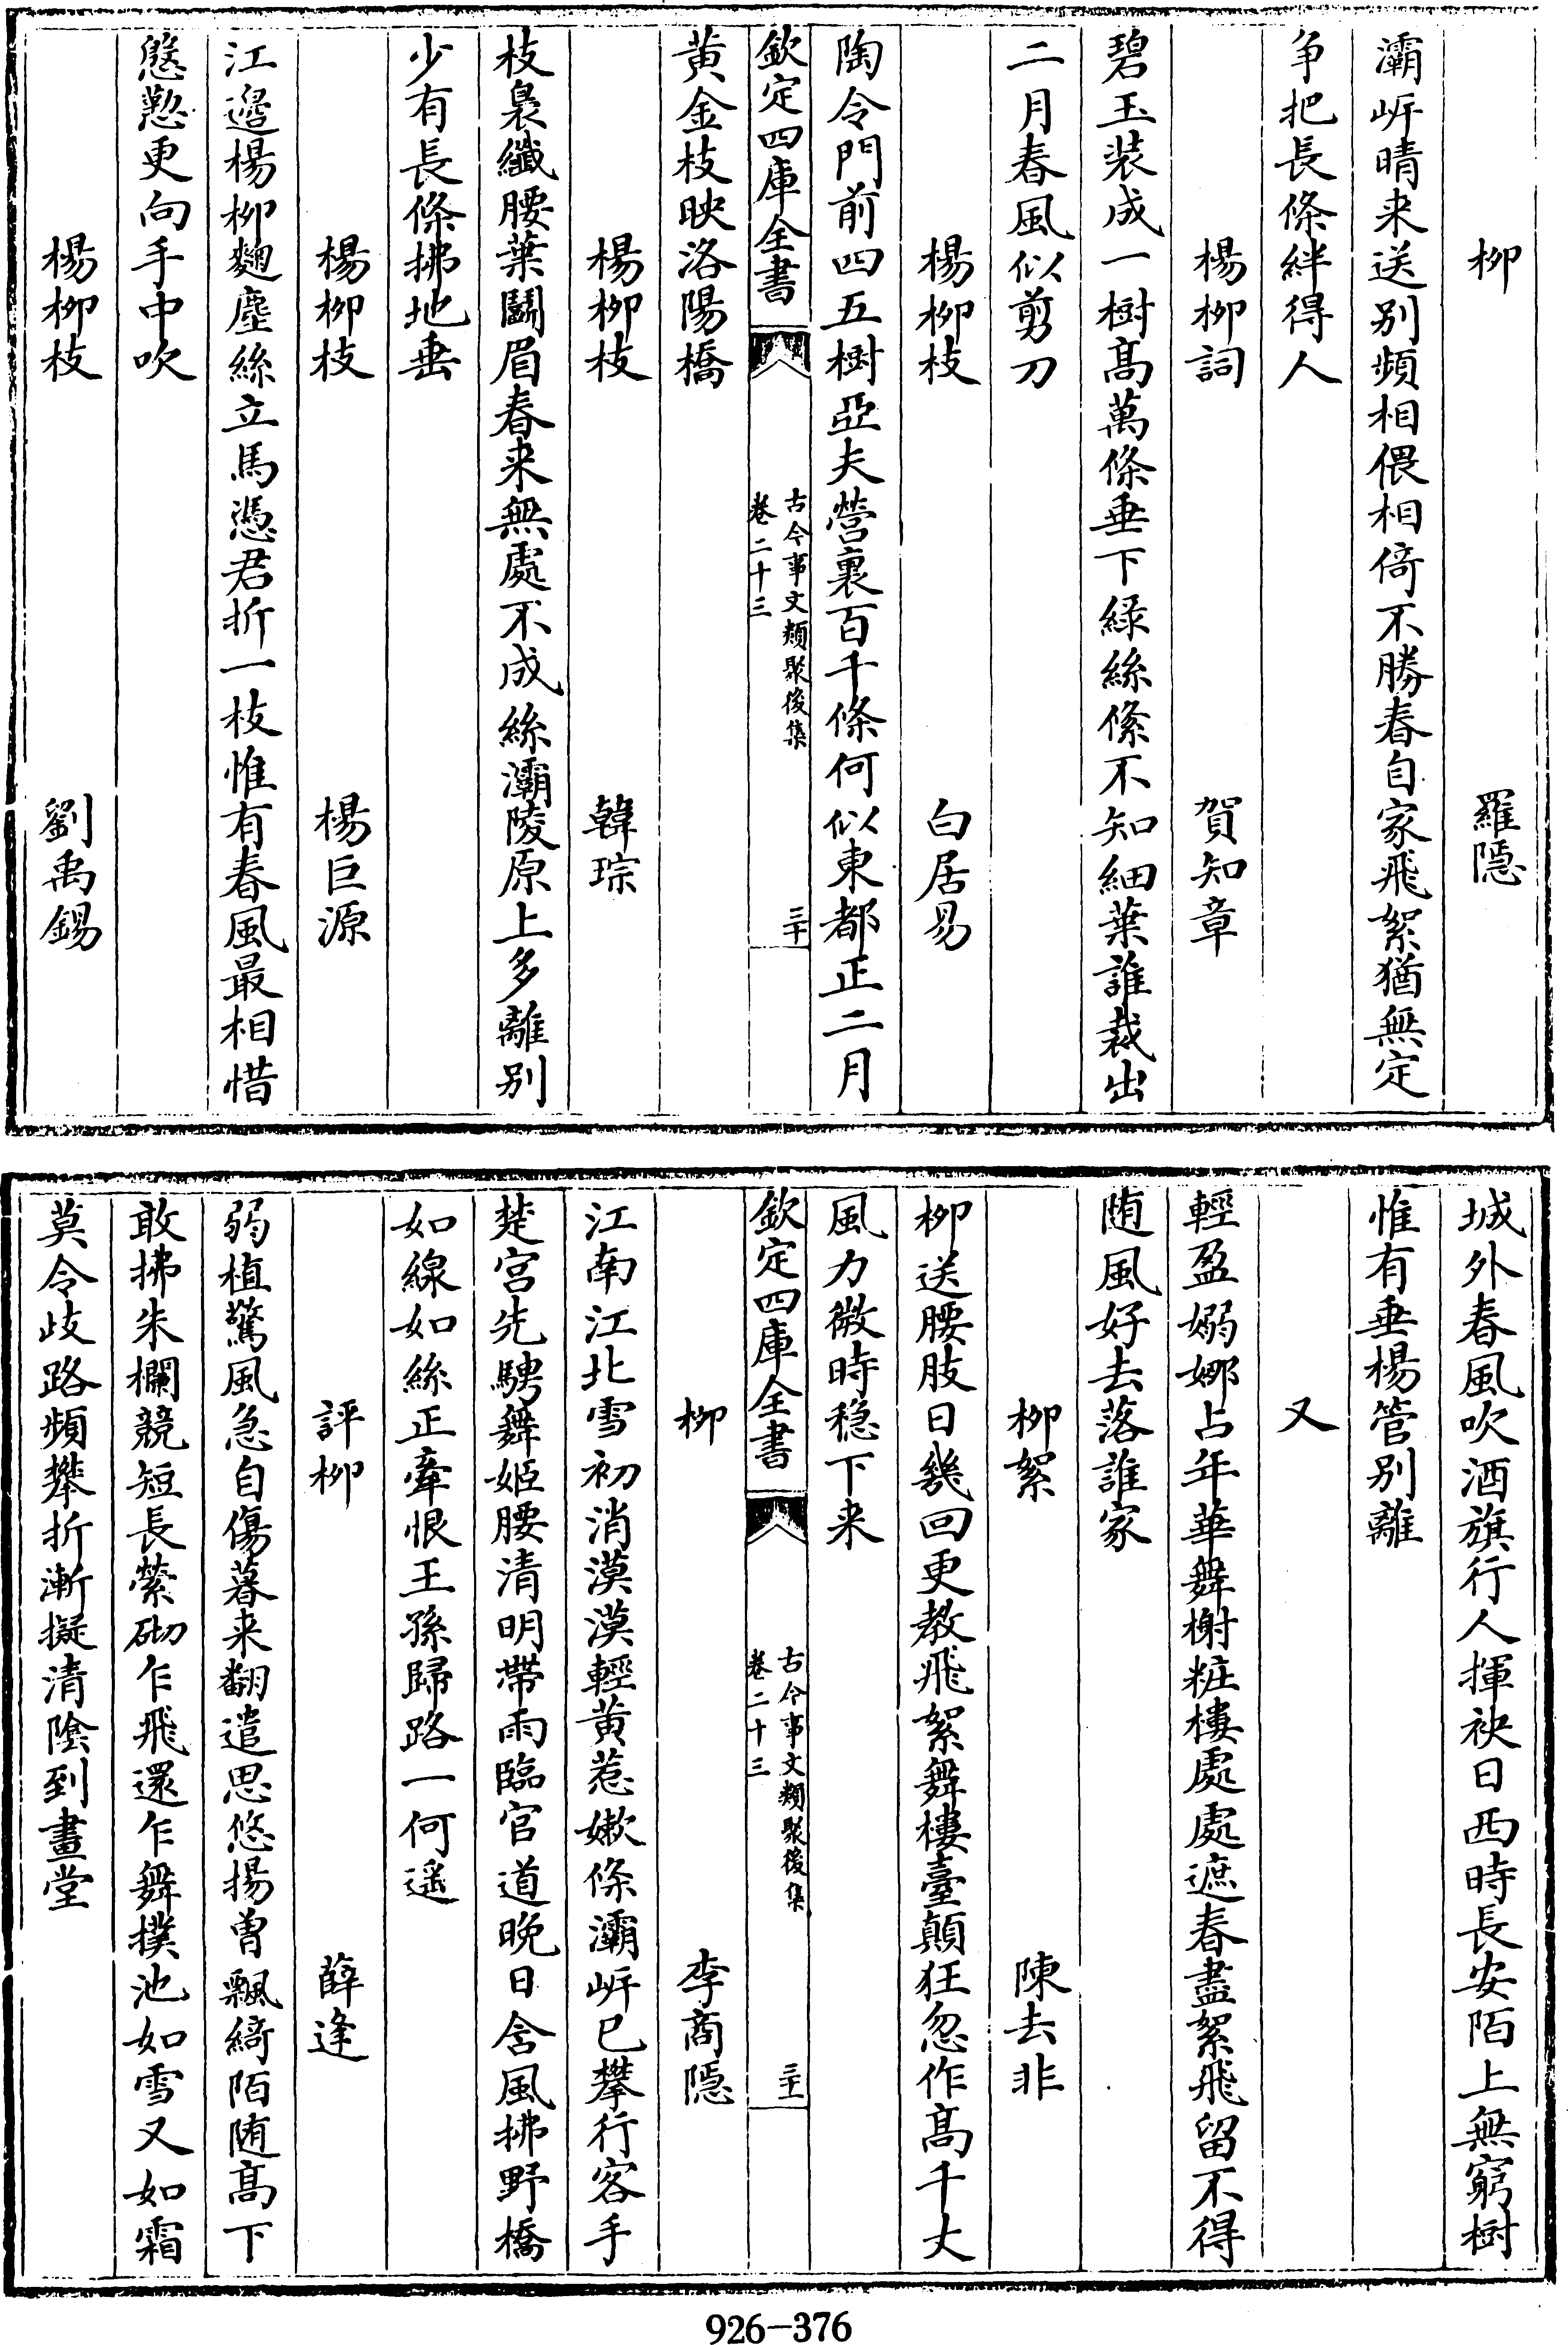 柳 羅隱
灞岍晴来送别頻相偎相倚不勝春自家飛絮猶無定
争把長條絆得人
楊柳詞 賀知章
碧玉装成一樹髙萬條垂下緑絲絛不知細葉誰裁出
二月春風似剪刀
楊柳枝 白居易
陶令門前四五樹亞夫營裏百千條何似東都正二月
欽定四庫全書 古今事文類聚後集 卷二十三 三十
黄金枝映洛陽橋
楊柳枝 韓琮
枝裊纖腰葉鬭眉春来無處不成絲灞陵原上多離别
少有長條拂地垂
楊柳枝 楊巨源
江邉楊柳麴塵絲立馬憑君折一枝惟有春風最相惜
慇懃更向手中吹
楊柳枝 劉禹錫
城外春風吹酒旗行人揮袂日西時長安陌上無窮樹
惟有垂楊管别離
又
輕盈嫋娜占年華舞榭粧樓處處遮春盡絮飛留不得
随風好去落誰家
柳絮 陳去非
柳送腰肢日幾回更教飛絮舞樓臺顛狂忽作髙千丈
風力微時穏下来
欽定四庫全書 古今事文類聚後集 卷二十三 三十一
柳 李商隱
江南江北雪初消漠漠輕黄惹嫩條灞岍已攀行客手
楚宫先騁舞姬腰清明帶雨臨官道晚日含風拂野橋
如線如絲正牽恨王孫歸路一何遥
評柳 薛逢
弱植驚風急自傷暮来翻遣思悠揚曽飄綺陌随髙下
敢拂朱欄競短長縈砌乍飛還乍舞撲池如雪又如霜
莫令歧路頻攀折漸擬清陰到畫堂
926-376